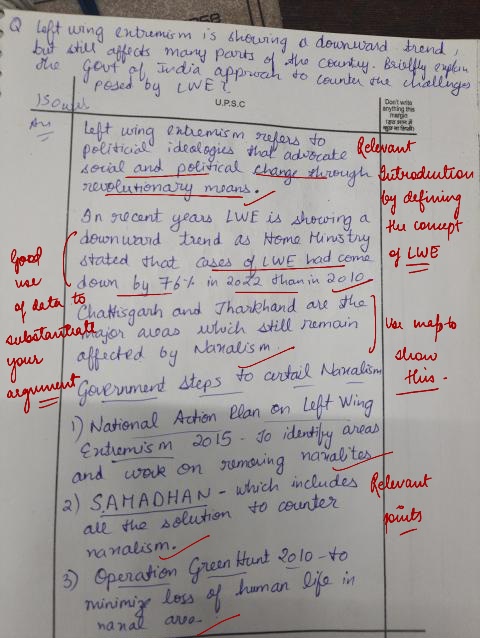 Q Left wing extremism is showing a downward trend,
but still affects many parts of the country. Briefly explain
the Govt of India approach to counter the challenges
posed by LWE?
150
U.P.S.C
Don't write
anything this
margin
(इस भाग में
कुछ ना लिखें)
Ans
Left wing extremism refers to
politicial ideologies that advocate
social and political change through
revolutionary means.
Relevant
Introduction
by defining
the concept
of LWE
In recent years LWE is showing a
downward trend as Home Ministry
stated that cases of LWE had come
down by 76% in 2022 than in 2010.
Good
use
of data to
substantiate
your
argument
Chattisgarh and Jharkhand are the
major areas which still remain
affected by Naxalism.
use map to
show
this.
Government steps to curtail Naxalism
1) National Action Plan on Left Wing
Extremism 2015 - To identify areas
and work on removing naxalites
2) SAMADHAN - which includes
all the solution to counter
naxalism.
Relevant
points
3) Operation Green Hunt 2010 - to
minimize loss of human life in
naxal area.